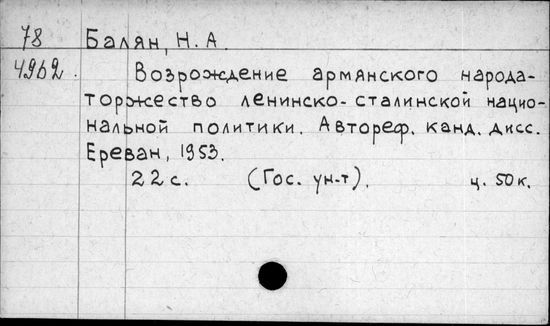 78 Балян, Н. А.
4962. Возрождение армянского народа-
торжество ленинско-сталинской нацио-
нальной политики. Автореф. канд. дисс.
Ереван, 1953.
22 с. (Гос. ун-т). ц. 50 к.